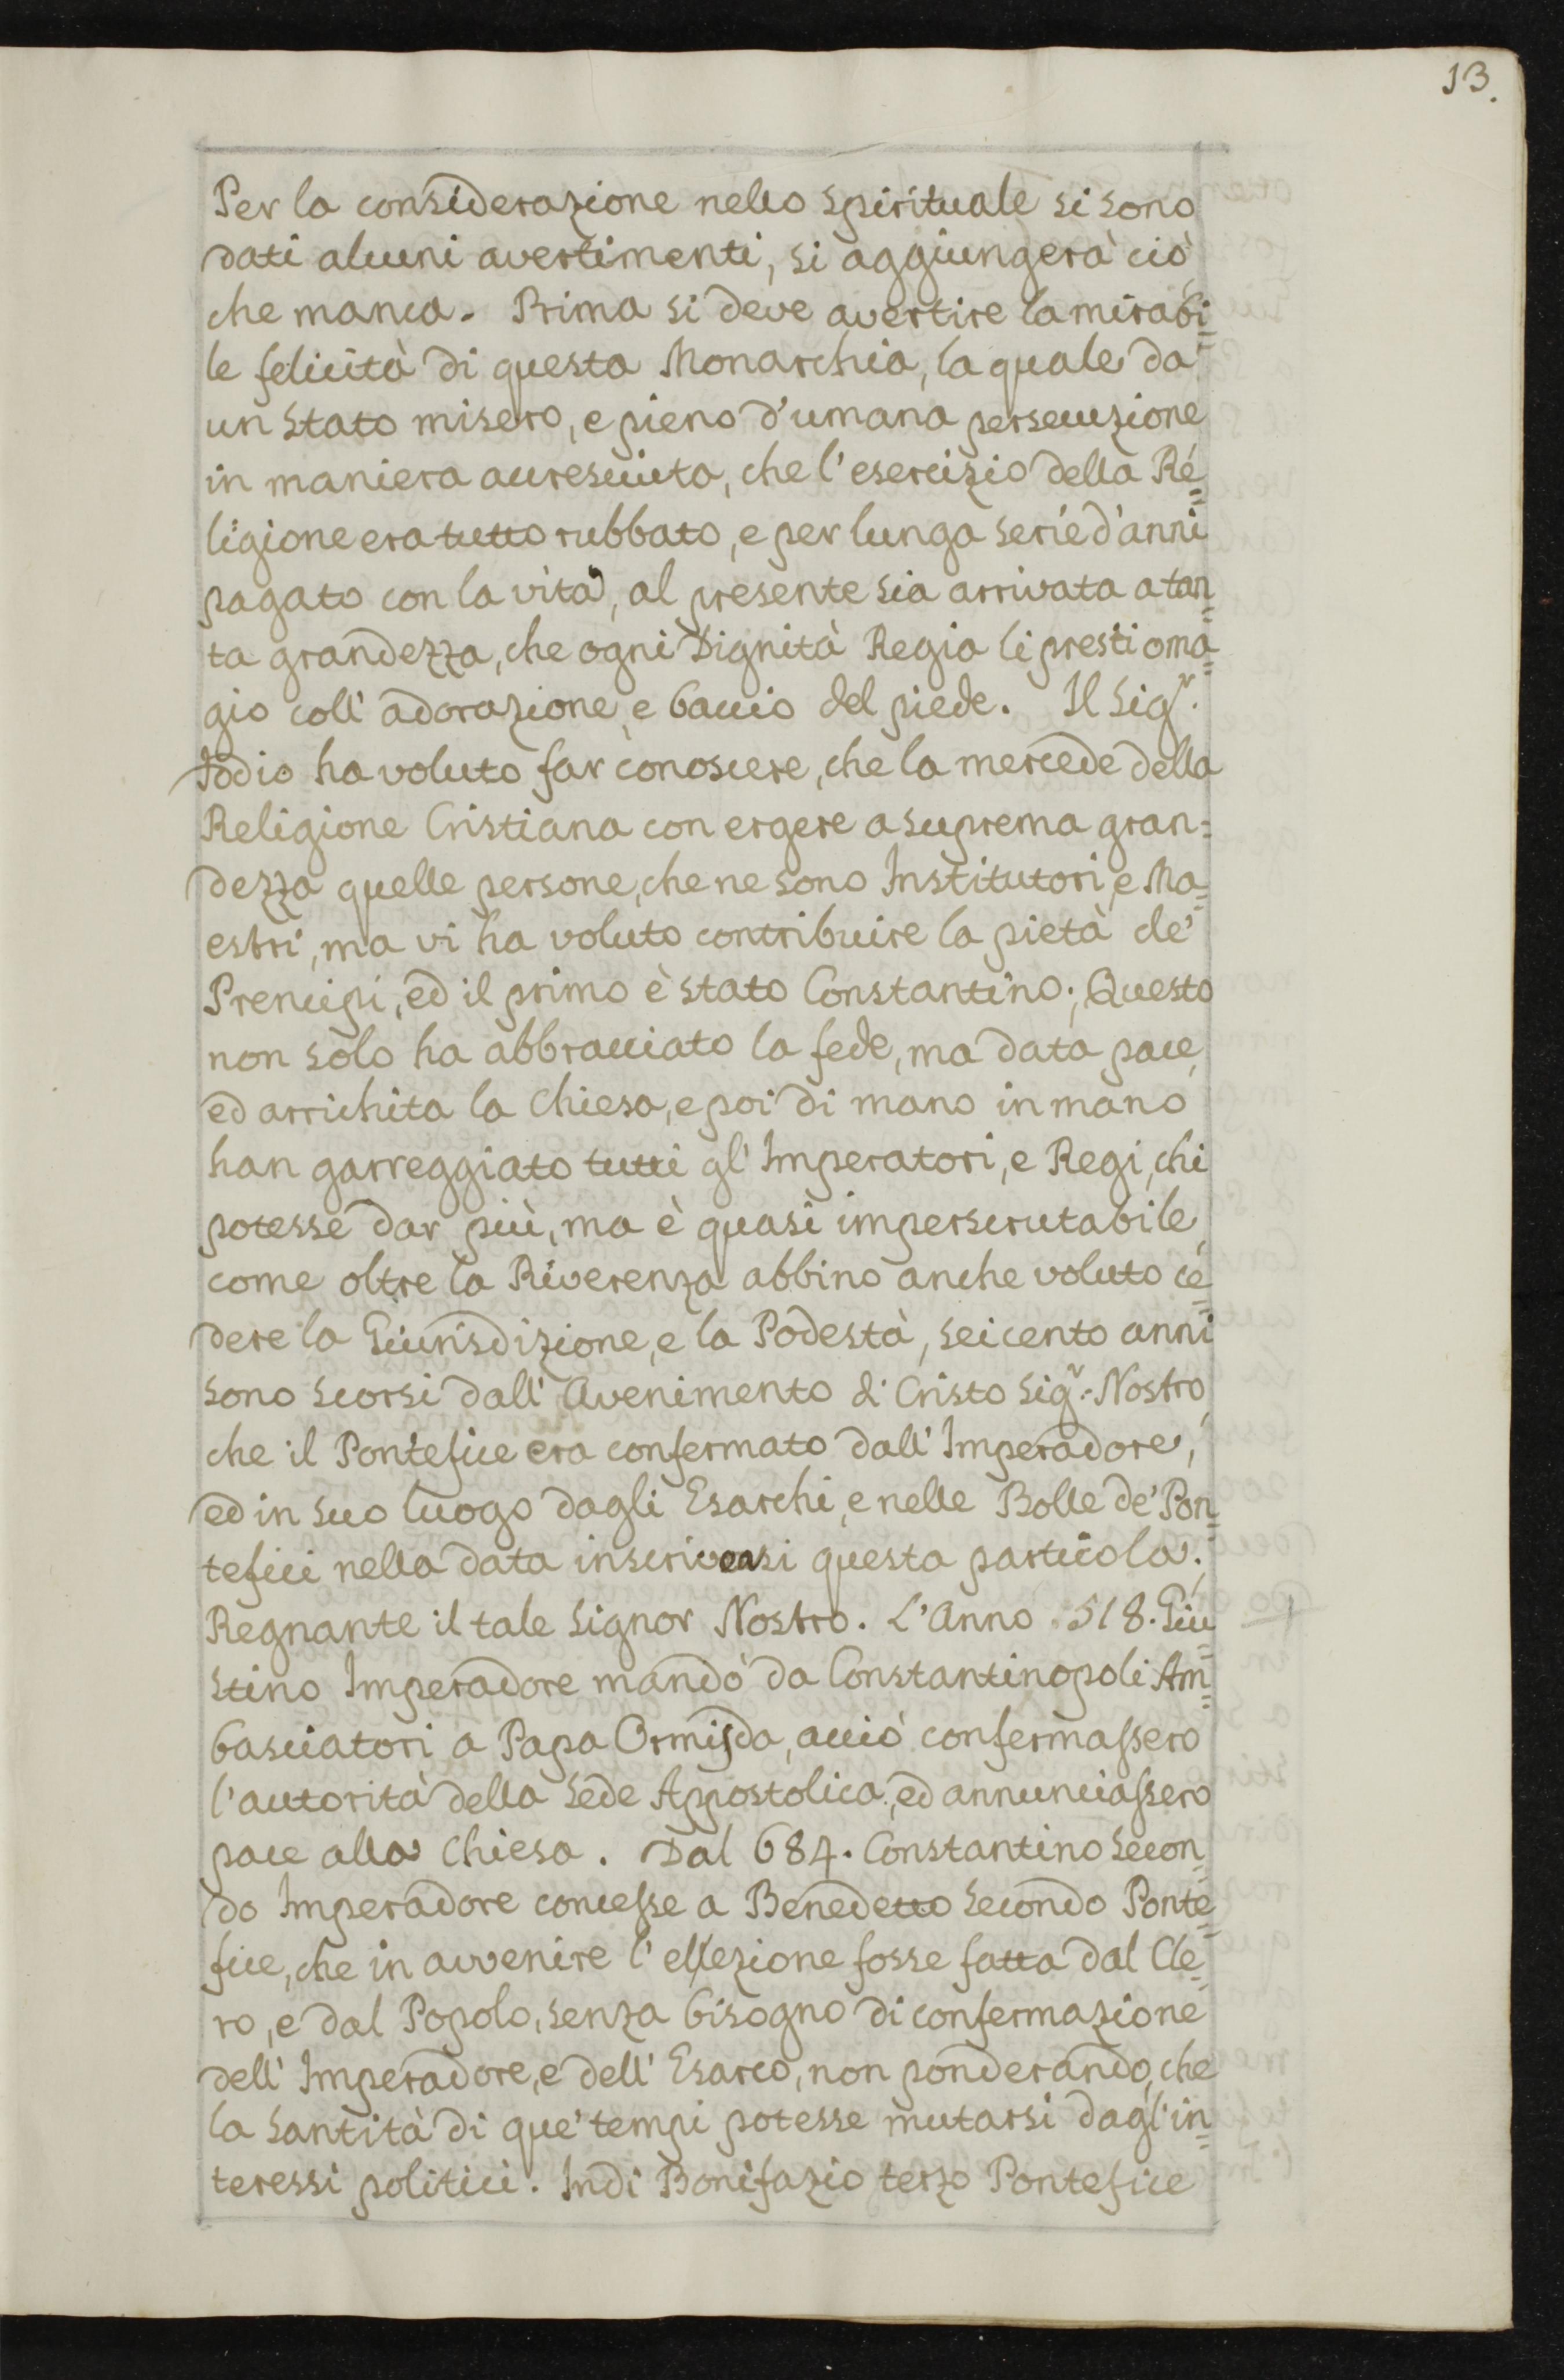 13.
Per la considerazione nello Spirituale si sono
dati alcuni avertimenti, si aggiungerà ciò
che manca. Prima si deve avertire la mirabi=
le felicità di questa Monarchia, la quale da
un Stato misero, e pieno d'umana persecuzione
in maniera accresciuta, che l'esercizio della Re=
ligione era tutto rubbato, e per lunga serie d'anni
pagato con la vita, al presente sia arrivata a tan=
ta grandezza, che ogni Dignità Regia li presti oma=
gio coll' adorazione, e baccio del piede. Il Sig.r
Iddio ha voluto far conoscere, che la mercede della
Religione Cristiana con ergere a suprema gran=
dezza quelle persone, che ne sono Institutori, e Ma=
estri, ma vi ha voluto contribuire la pietà de'
Prencipi, ed il primo è stato Constantino; Questo
non solo ha abbracciato la fede, ma data pace,
ed arrichita la Chiesa, e poi di mano in mano
han garreggiato tutti gl' Imperatori, e Regi, chi
potesse dar più, ma è quasi imperscrutabile,
come oltre la Riverenza abbino anche voluto ce=
dere la Giurisdizione, e la Podestà, seicento anni
sono scorsi dall' Avenimento di Cristo Sig.r Nostro,
che il Pontefice era confermato dall' Imperadore,
ed in suo luogo dagli Esarchi, e nelle Bolle de' Pon=
tefici nella data inscriveasi questa particola;
Regnante il tale Signor Nostro. L'Anno 518. Giu=
stino Imperadore mandò da Constantinopoli Am=
basciatori a Papa Ormisda, acciò confermassero
l'autorità della Sede Appostolica, ed annunciassero
pace alla Chiesa. Dal 684. Constantino Secon=
do Imperadore concesse a Benedetto Secondo Ponte=
fice, che in avvenire l' ellezione fosse fatta dal Cle=
ro, e dal Popolo, senza bisogno di confermazione
dell' Imperadore, e dell' Esarco, non ponderando, che
la Santità di que' tempi potesse mutarsi dagl'in=
teressi politici. Indi Bonifazio terzo Pontefice